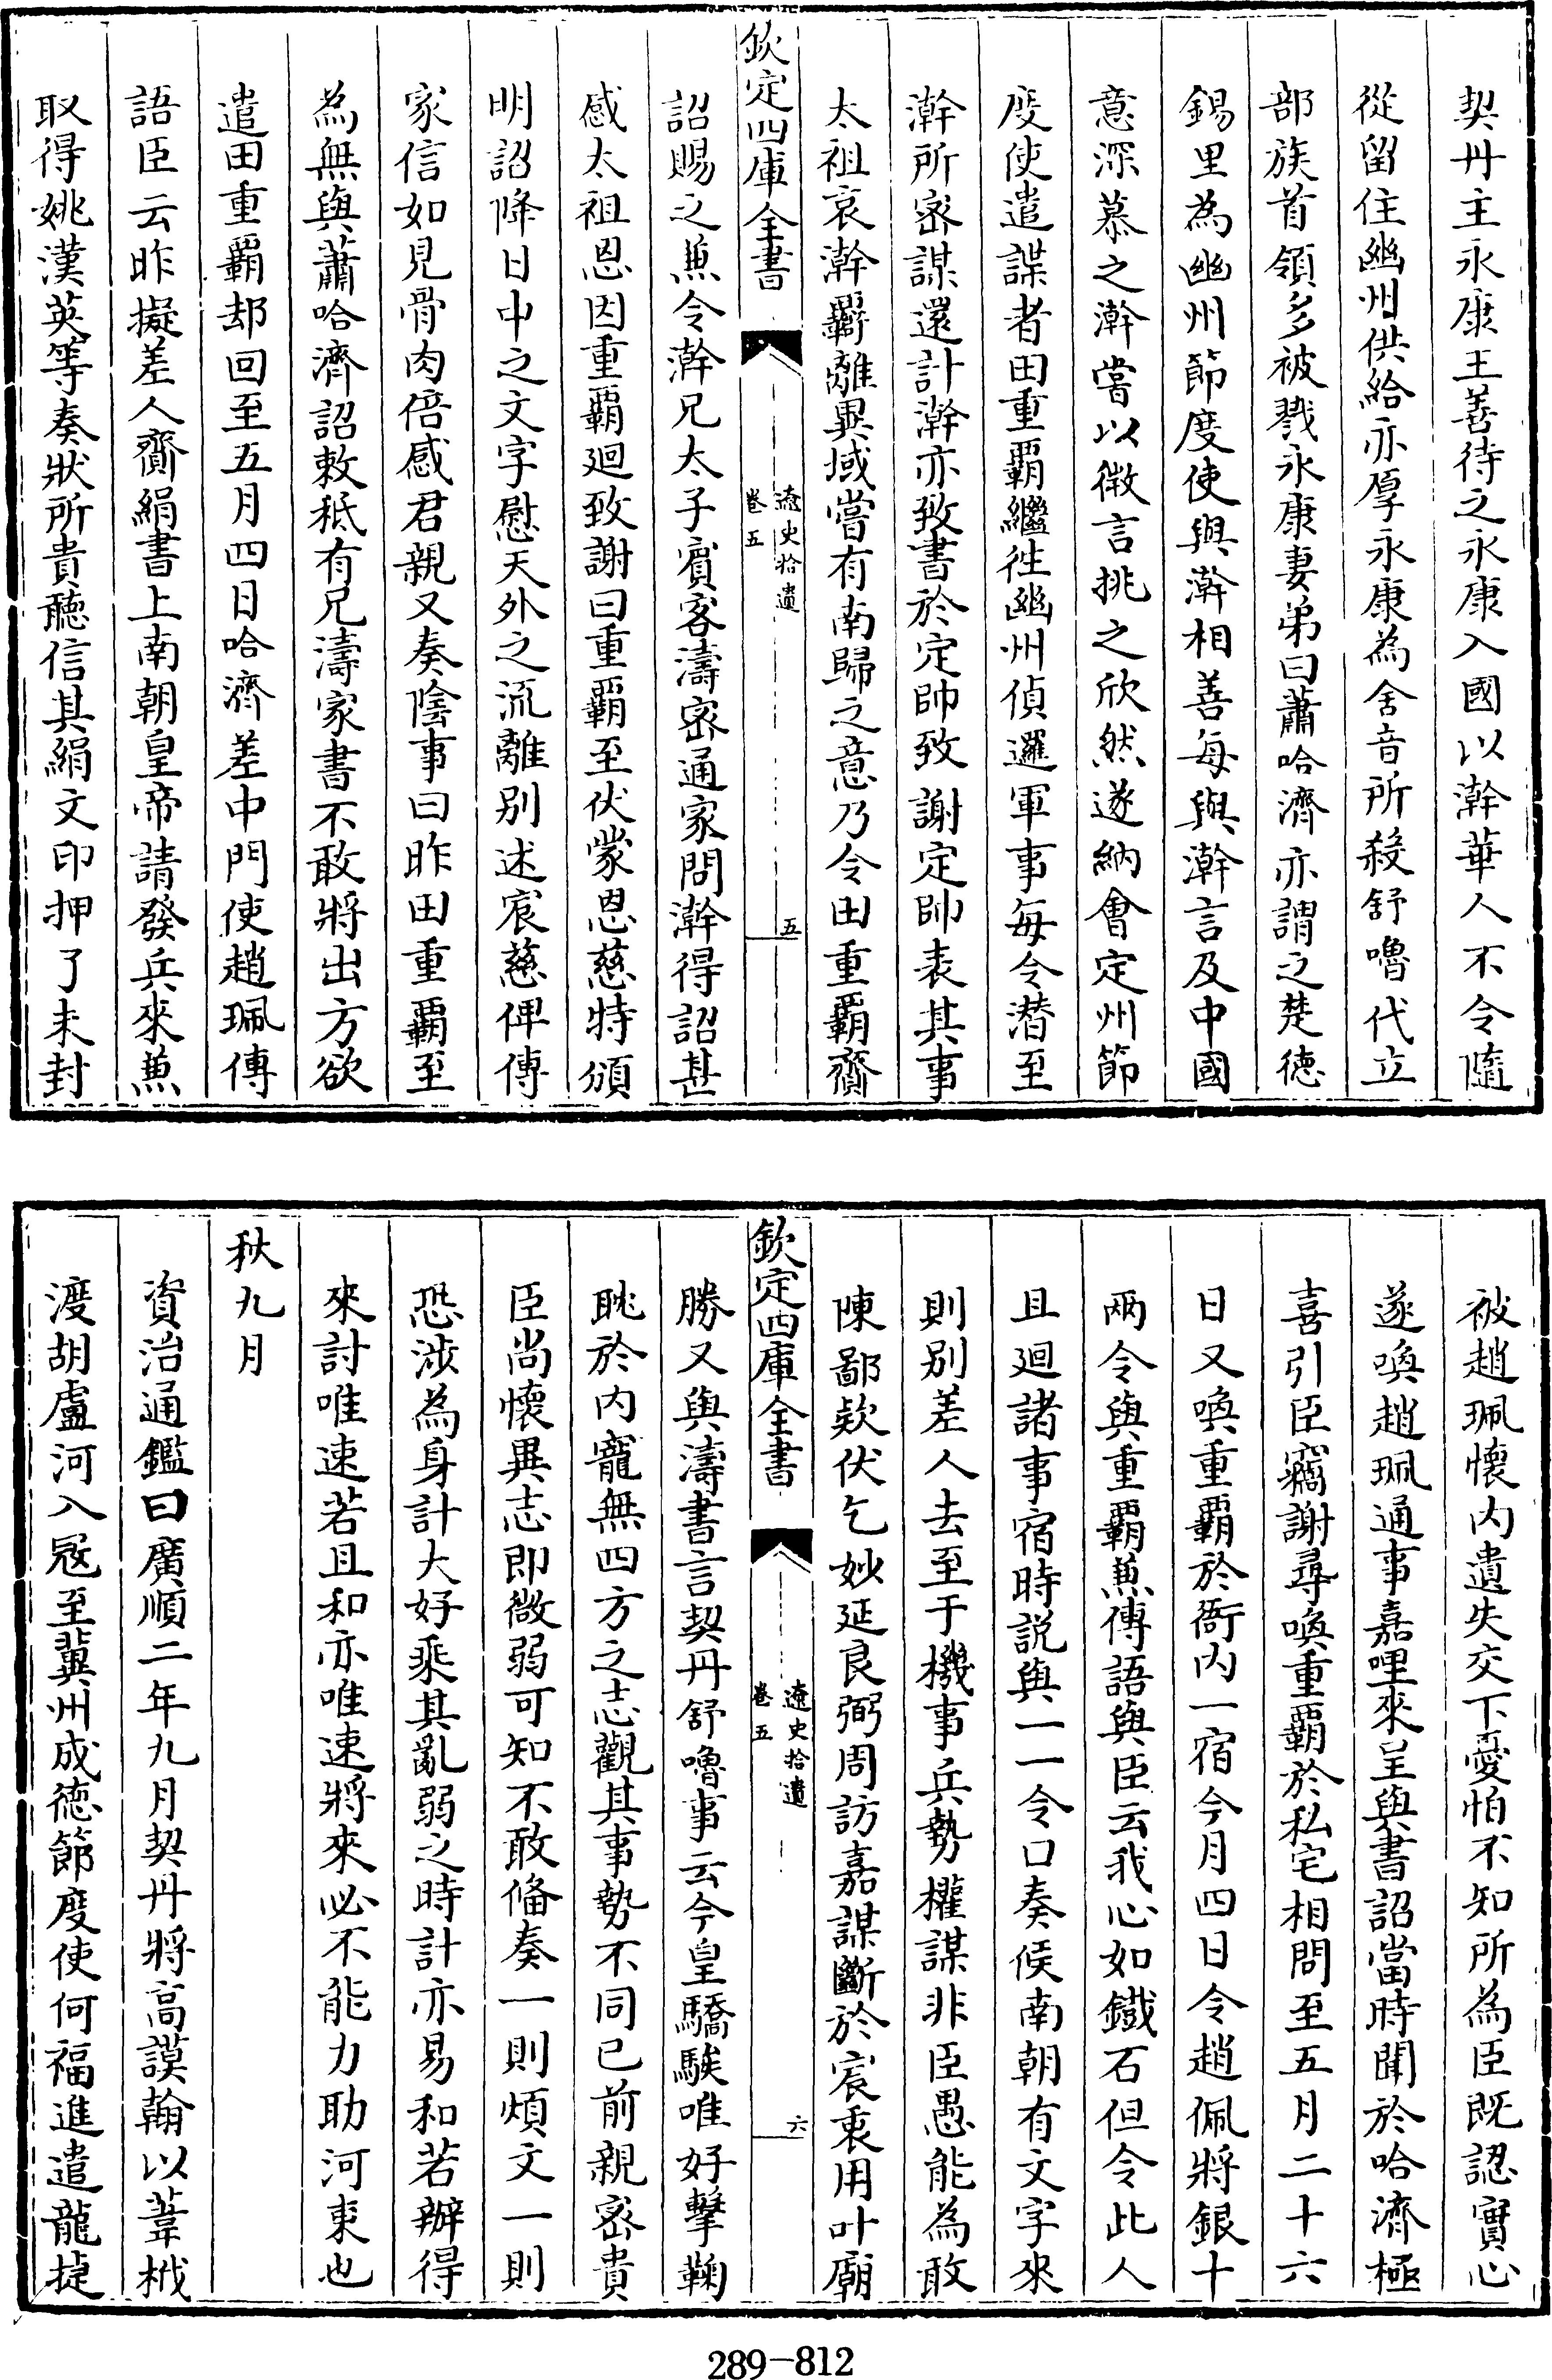 契丹主永康王善待之永康入國以澣華人不令隨
從留住幽州供給亦厚永康為舍音所殺舒嚕代立
部族首領多被戮永康妻弟曰蕭哈濟亦謂之楚德
錫里為幽州節度使與澣相善每與澣言及中國
意深慕之澣嘗以徴言挑之欣然遂納會定州節
度使遣諜者田重霸繼徃幽州偵邏軍事每令潛至
澣所宻謀還計澣亦致書於定帥致謝定帥表其事
太祖哀澣羈離異域嘗有南歸之意乃令田重霸齎
欽定四庫全書
遼史拾遺
卷五
五
詔賜之兼令澣兄太子賓客濤宻通家問澣得詔甚
感太祖恩因重霸廻致謝曰重霸至伏蒙恩慈特頒
明詔降日中之文字慰天外之流離别述宸慈俾傳
家信如見骨肉倍感君親又奏陰事曰昨田重霸至
為無與蕭哈濟詔敕秪有兄濤家書不敢將出方欲
遣田重霸却回至五月四日哈濟差中門使趙珮傳
語臣云昨擬差人齎絹書上南朝皇帝請發兵來兼
取得姚漢英等奏狀所貴聽信其絹文印押了未封
被趙珮懷内遺失交下憂怕不知所為臣既認實心
遂喚趙珮通事嘉哩來呈與書詔當時聞於哈濟極
喜引臣竊謝尋喚重霸於私宅相問至五月二十六
日又喚重霸於衙内一宿今月四日令趙佩將銀十
兩令與重霸兼傳語與臣云我心如鐵石但令此人
且廻諸事宿時説與一一令口奏候南朝有文字來
則别差人去至于機事兵勢權謀非臣愚能為敢
陳鄙欵伏乞妙延良弼周訪嘉謀斷於宸衷用叶廟
欽定四庫全書
遼史拾遺
卷五
六
勝又與濤書言契丹舒嚕事云今皇驕騃唯好擊鞠
耽於内寵無四方之志觀其事勢不同已前親宻貴
臣尚懷異志即微弱可知不敢備奏一則煩文一則
恐涉為身計大好乘其亂弱之時計亦易和若辦得
來討唯速若且和亦唯速將來必不能力助河東也
秋九月
資治通鑑曰廣順二年九月契丹將高謨翰以葦栰
渡胡盧河入冦至冀州成徳節度使何福進遣龍捷
289-812